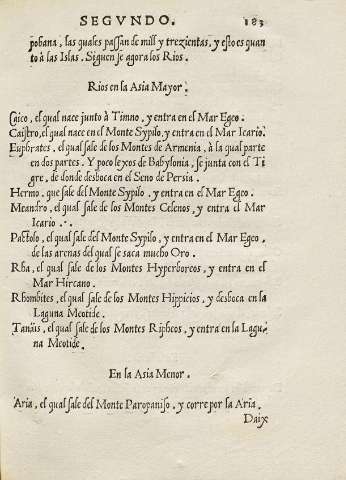 SEGVNDO. 183
pobana, las quales passan de mill y trezientas, y esto es quan
to à las Islas. Siguense agora los Rios.
Rios en la Asia Mayor.
Caico, el qual nace junto à Timno, y entra en el Mar Egeo.
Caistro, el qual nace en el Monte Sypilo, y entra en el Mar Icario.
Euphrates. el qual sale de los Montes de Armenia, à la qual parte
en dos partes. Y poco lexos de Babylonia, se junta con el Ti
gre, de donde desboca en el Seno de Persia.
Hermo. que sale del Monte Sypilo, y entra en el Mar Egeo.
Meandro, el qual sale de los Montes Celenos, y entra el Mar
Icario.
Pactolo, el qual sale del Monte Sypilo, y entra en el Mar Egeo,
de las arenas del qual se saca mucho Oro.
Rha, el qual sale de los Montes Hyperboreos, y entra en el
Mar Hircano.
Rhombites, el qual sale de los Montes Hippicios, y desboca en la
Laguna Meotide.
Tanais, el qual sale de los Montes Ripheos, y entra en la Lagu
na Meotide.
En la Asia Menor.
Aria, el qual sale del Monte Paropaniso, y corre por la Aria.
Daix